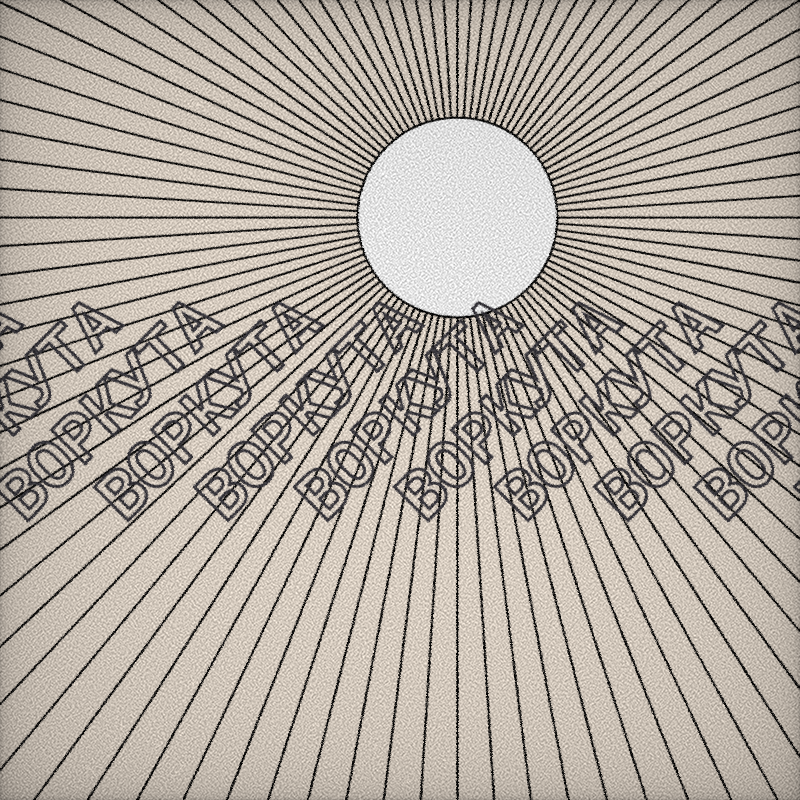 ВОРКУТА ВОРКУТА ВОРКУТА ВОРКУТА ВОРКУТА ВОРКУТА ВОРКУТА ВОРКУТА